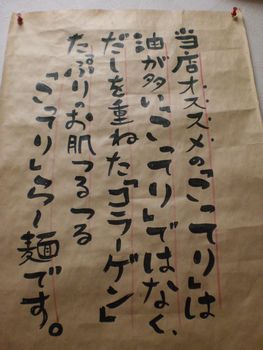 当店オススメの「こってり」は
油が多い「こってり」ではなく、
だしを重ねた「コラーゲン」
たぷりのお肌つるつる
「こってり」らー麺です。